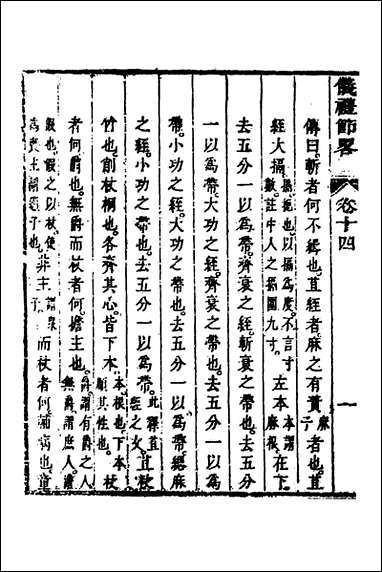 儀禮節畧
卷十四
一
傳曰斬者何不緝也苴絰者麻之有蕡麻子者也苴
絰大搹搹搤也以搹爲度不言寸數註中人之搹圍九寸左本本謂麻根在下
去五分一以爲帶齊衰之絰斬衰之帶也去五分
一以爲帶大功之絰齊衰之帶也去五分一以爲
帶小功之絰大功之帶也去五分一以爲帶緦麻
之絰小功之帶也去五分一以爲帶此釋苴絰之文苴杖
竹也削杖桐也各齊其心皆下本本根也下本順其性也杖
者何爵也無爵而杖者何擔主也爵謂有爵之人無爵謂庶人擔
假也假之以杖使爲喪主謂適子也非主謂衆子而杖者何輔病也童